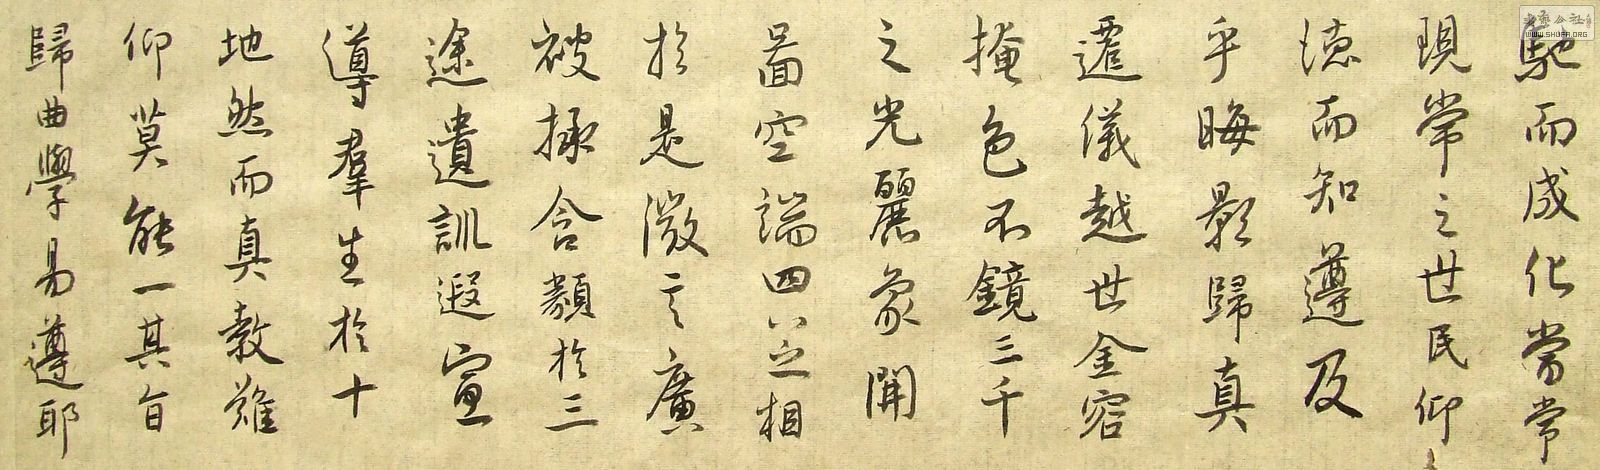 馳而成化當常
現常之世民仰
德而知遵及
乎晦影歸真
遷儀越世金容
掩色不鏡三千
之光麗象開
圖空端四八之相
於是微言廣
被拯含類於三
途遺訓遐宣
導羣生於十
地然而真教難
仰莫能一其旨
歸曲學易遵耶
WWW.SHUFA.ORG